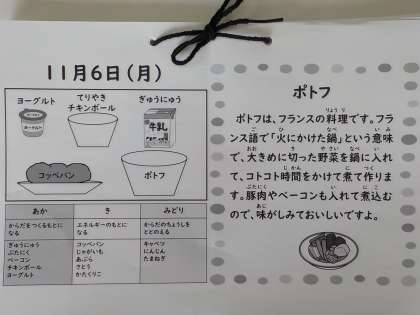 11月6日(月)
ヨーグルト
てりやき
チキンボール
ぎゅうにゅう
ヨーグルト
牛乳
コッペパン
ポトフ
あか
き
みどり
からだをつくるもとに
なる
エネルギーのもとに
なる
からだのちょうしを
ととのえる
ぎゅうにゅう
ぶたにく
ベーコン
チキンボール
ヨーグルト
コッペパン
じゃがいも
あぶら
さとう
かたくりこ
キャベツ
にんじん
たまねぎ
ポトフ
ポトフは、フランスの料理です。フラ
ンス語で「火にかけた鍋」という意味
で、大きめに切った野菜を鍋に入れ
て、コトコト時間をかけて煮て作りま
す。豚肉やベーコンも入れて煮込む
ので、味がしみておいしいですよ。